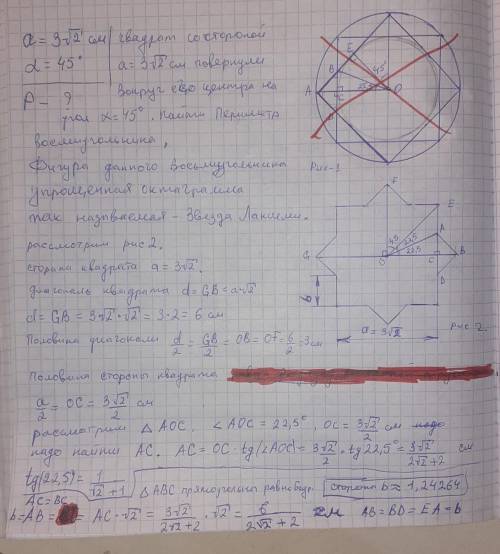 a = 3√2 см
α = 45°
P — ?
квадрат со стороной
a = 3√2 см повернули
вокруг его центра на
угол α = 45°. Найти Периметр
восмиугольника,
Фигура данного восьмиугольника
упрощенная октаграмма
так называемая – Звезда Лакшми.
рассмотрим рис 2.
сторона квадрата a = 3√2.
диагональ квадрата d = GB = a·√2
d = GB = 3√2·√2 = 3·2 = 6 см
Половина диагонали d/2 = GB/2 = OB = OF = 6/2 = 3см
Половина стороны квадрата
a/2 = OC = 3√2/2 см
рассмотрим △AOC, ∠AOC = 22,5°, OC = 3√2/2 см надо
надо найти AC. AC = OC·tg(∠AOC) = 3√2/2 · tg 22,5° = 3√2/2√2+2 см
tg(22,5) = 1/√2+1
AC = BC,
△ABC прямоугольн равнобедр.
сторона b ≈ 1,24264
b = AB = AC·√2 = 3√2/2√2+2 · √2 = 6/2√2+2 см
AB = BD = EA = b
E
B
45°
A
C
22,5
O
Рис-1
F
E
A
45
22,5
22,5
G
O
C
B
D
b
a = 3√2
Рис 2.